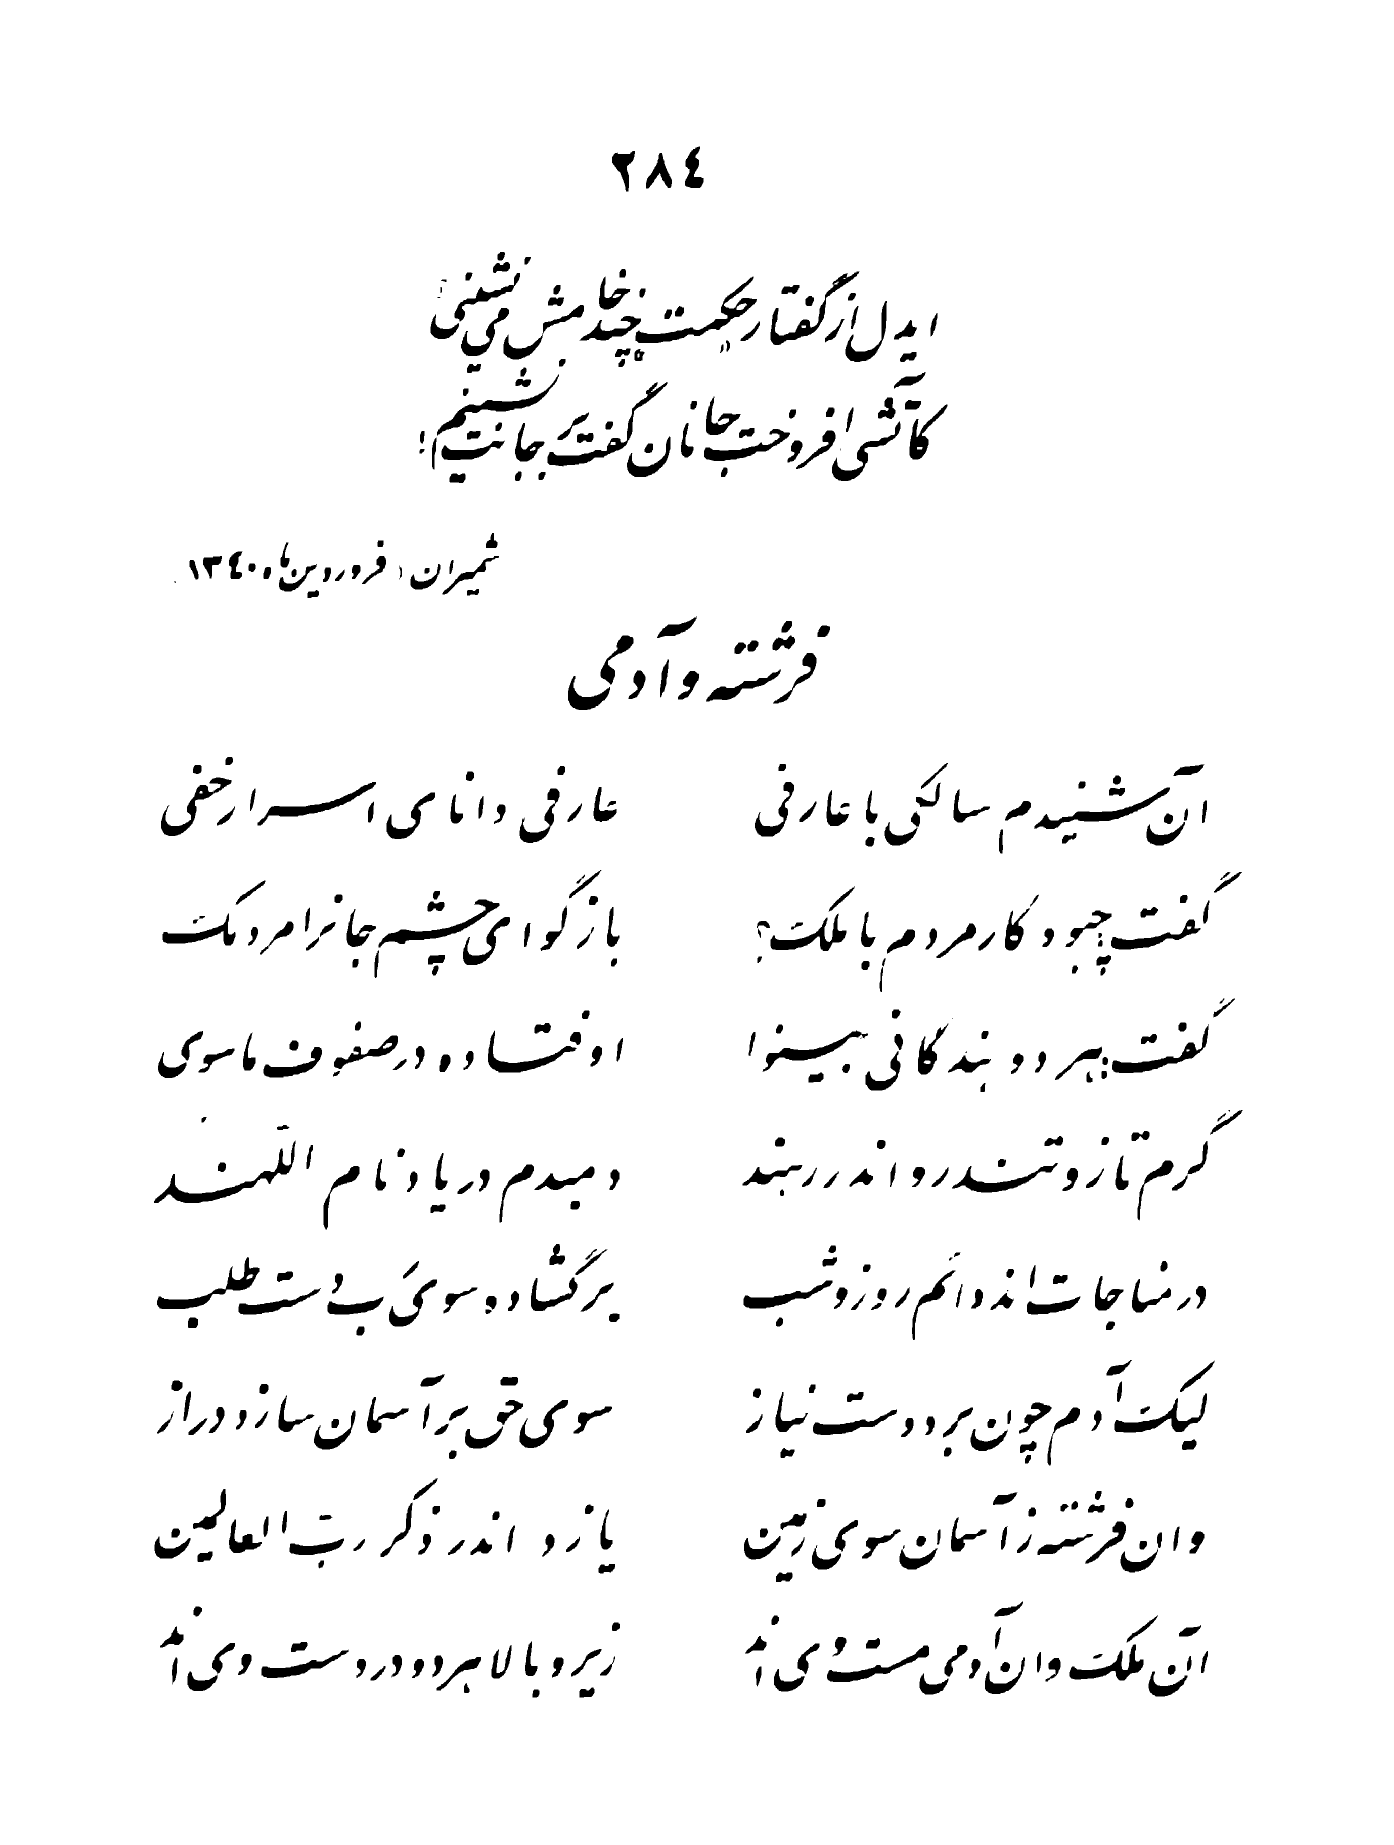 ٢٨٤
ایدل از گفتار حکمت چند خامش می نشینی
کآتشی افروخت جانان گفت بر جانت نشینم!
شمیران، فروردین ماه ١٣٤٠
فرشته و آدمی
آن شنیدم سالکی با عارفی عارفی دانای اسرار خفی
گفت چبود کار مردم با ملک؟ بازگو ای چشم جانرا مردمک
گفت هر دو بندگانی بینوا اوفتاده در صفوف ماسوی
گرم تاز و تند رو اندر رهند دمبدم در یاد نام اللهند
در مناجات اند دائم روز و شب برگشاده سوی رب دست طلب
لیک آدم چون برد دست نیاز سوی حق بر آسمان سازد دراز
وان فرشته ز آسمان سوی زمین یازد اندر ذکر رب العالمین
آن ملک وان آدمی مست وی اند زیر و بالا هر دو در دست وی اند